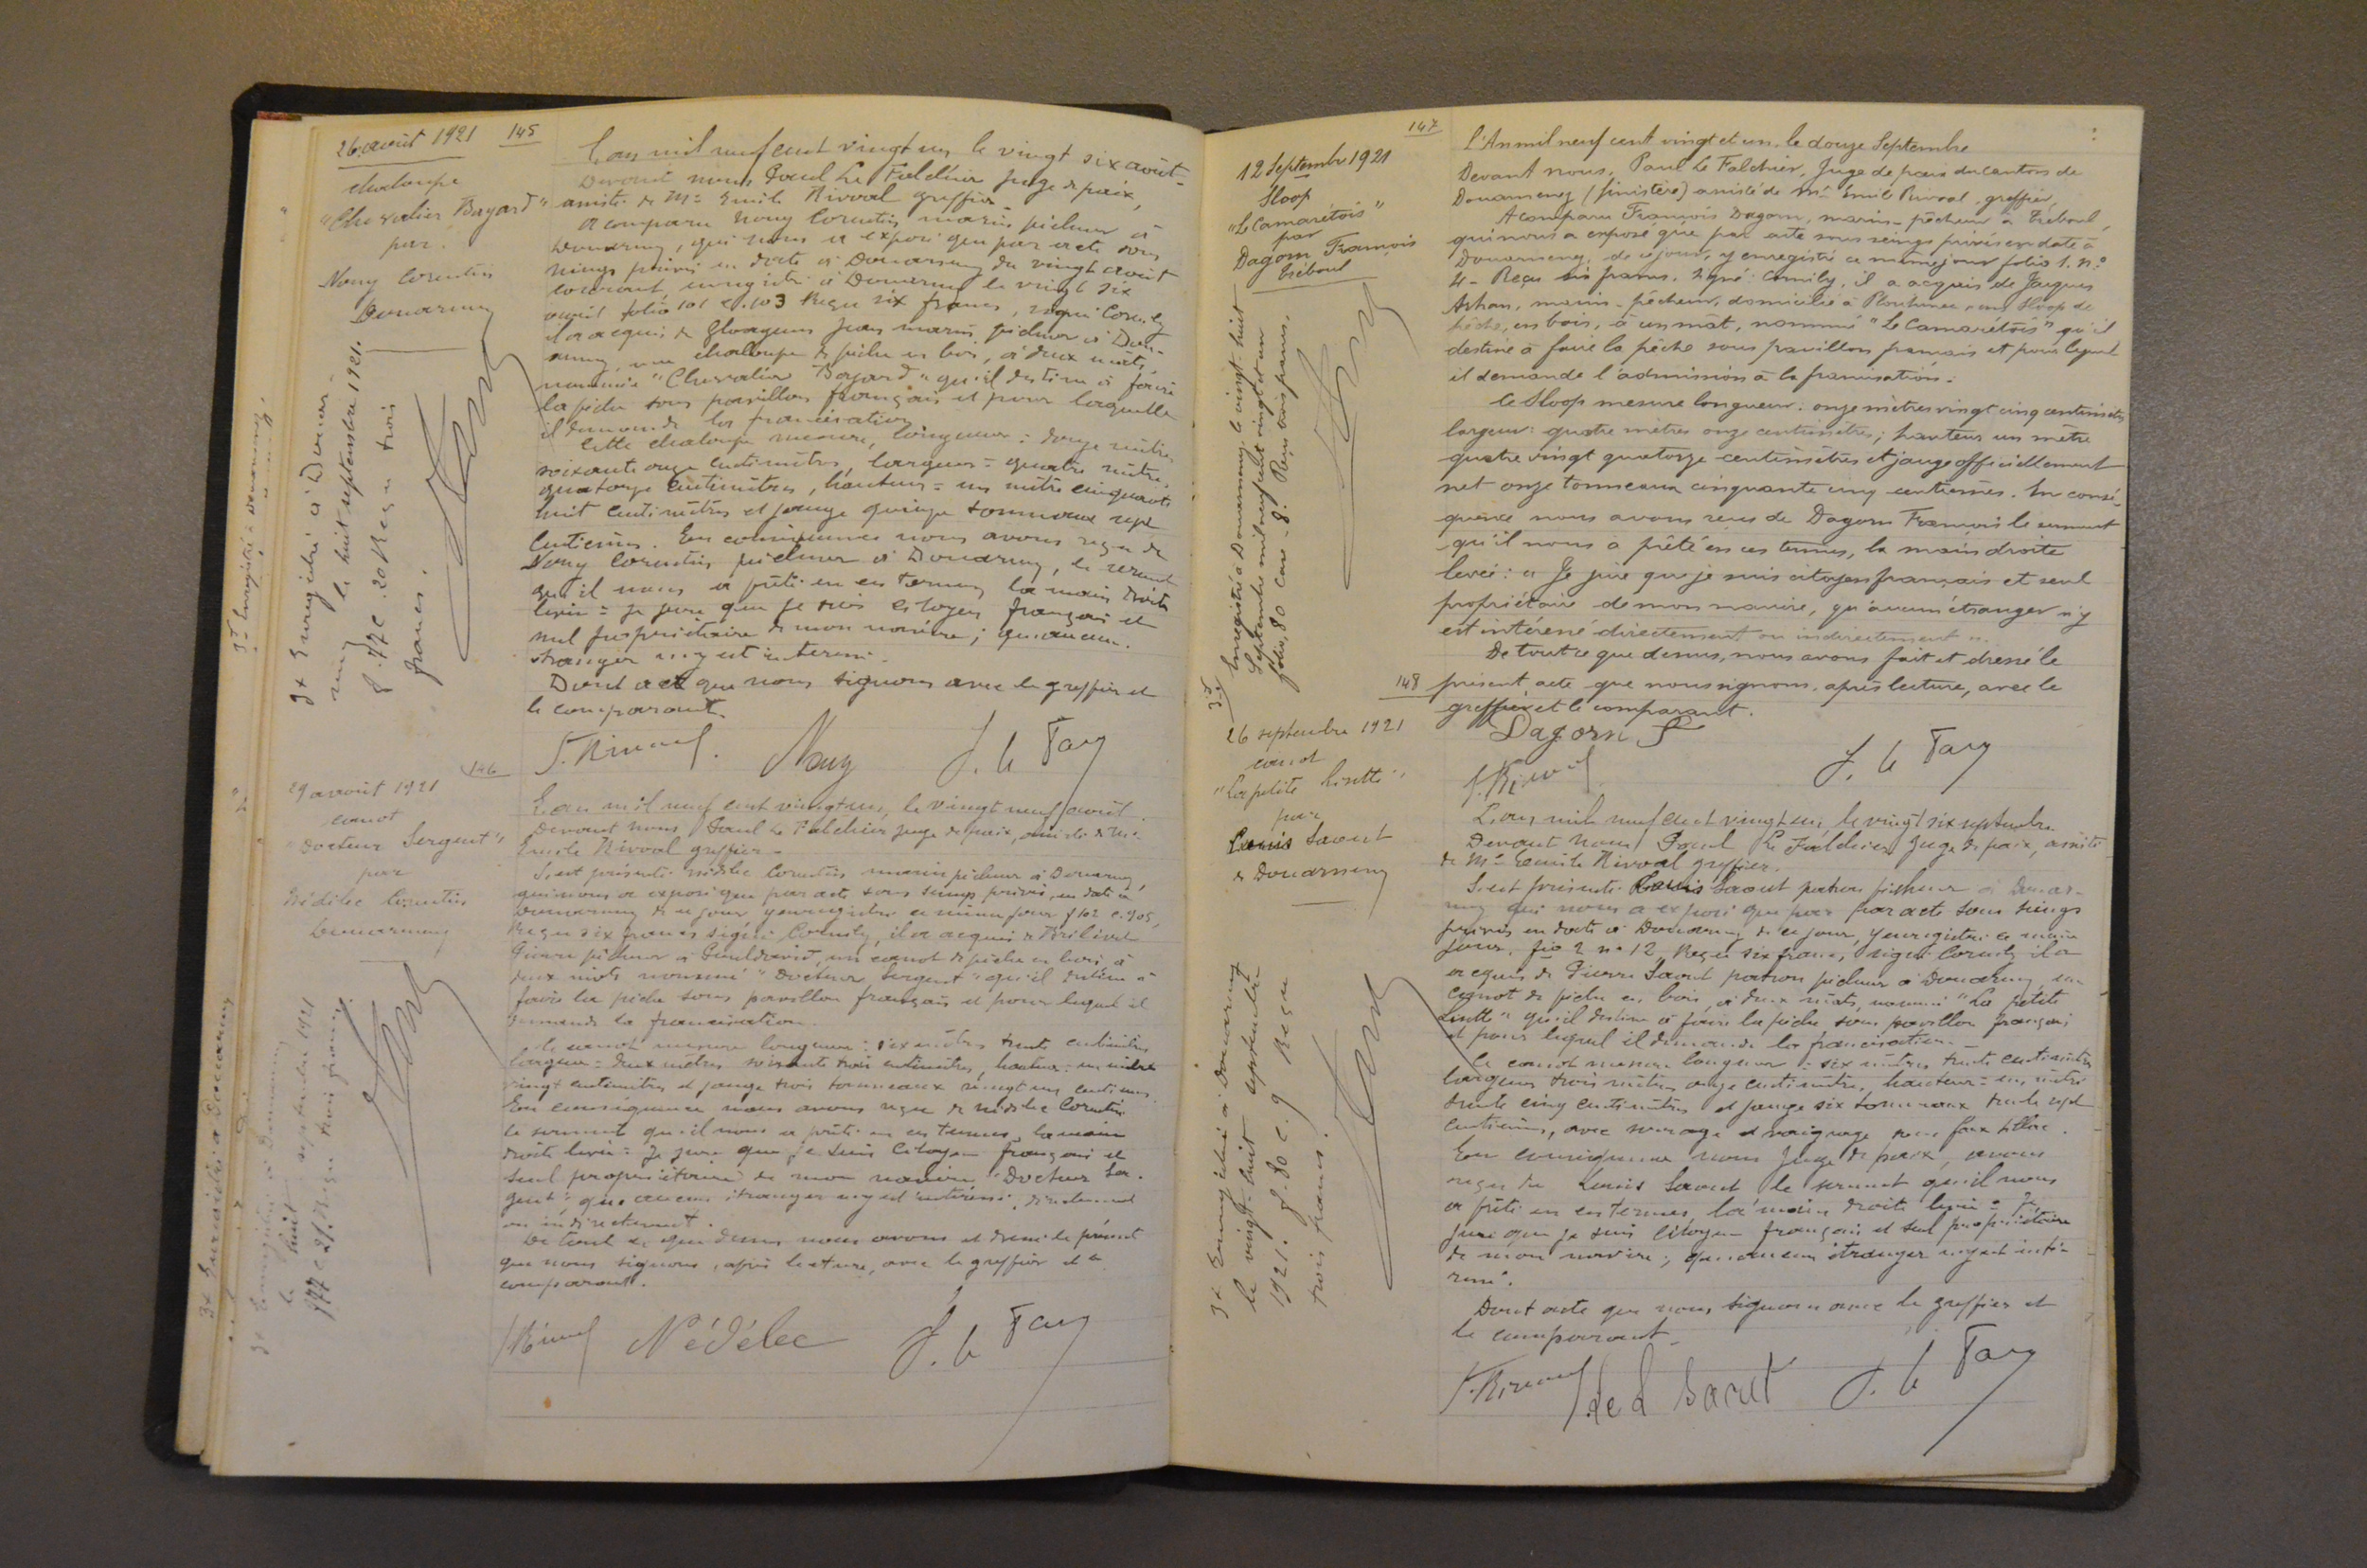 26 août 1921
145
chaloupe
"Chevalier Bayard"
par
Nouy Corentin
Douarnenez
3x Enregistré à Douarne
nez le huit septembre 1921.
f. 77 C. 20 Reçu trois
francs.
L'an mil neuf cent vingt un le vingt six août
Devant nous Paul Le Falchier Juge de paix,
assisté de Me Emile Rivoal greffier
A comparu Nouy Corentin marin pêcheur à
Douarnenez, qui nous a exposé que par acte sous
seings privés en date à Douarnenez du vingt août
courant enregistré à Douarnenez le vingt six
août folio 101 C. 103 Reçu six francs, signé Comily
il a acquis de Gloaguen Jean marin pêcheur à Douar-
nenez, une chaloupe de pêche en bois, à deux mâts,
nommée "Chevalier Bayard" qu'il destine à faire
la pêche sous pavillon français et pour laquelle
il demande la francisation
Cette chaloupe mesure, longueur : douze mètres
soixante onze centimètres, largeur = quatre mètres
quatorze centimètres, hauteur = un mètre cinquante
huit centimètres et jauge quinze tonneaux sept
centièmes. En conséquence nous avons reçu de
Nouy Corentin pêcheur à Douarnenez, le serment
qu'il nous a prêté en ces termes la main droite
levée = Je jure que je suis citoyen français et
seul propriétaire de mon navire ; qu'aucun
étranger n'y est intéressé.
Dont acte que nous signons avec le greffier et
le comparant
E. Rivoal. Nouy
146
29 août 1921
canot
Docteur Sergent"
par
Nédélec Corentin
Douarnenez
3x Enregistré à Douarnenez
le huit septembre 1921
f 77 C 21. Reçu trois francs.
L'an mil neuf cent vingt un, le vingt neuf août.
Devant nous Paul Le Falchier Juge de paix, assisté de Me
Emile Rivoal greffier
S'est présenté Nédélec Corentin marin pêcheur à Douarnenez,
qui nous a exposé que par acte sous seings privés, en date à
Douarnenez de ce jour y enregistré ce même jour f 102 C. 905,
Reçu six francs signé Comily, il a acquis de
Pierre pêcheur à Pouldavid, un canot de pêche en bois, à
deux mâts nommé "Docteur Sergent" qu'il destine à
faire la pêche sous pavillon français et pour lequel il
demande la francisation.
Le canot mesure longueur : six mètres trente centimètres
largeur = deux mètres soixante trois centimètres, hauteur : un mètre
vingt centimètres et jauge trois tonneaux vingt un centièmes.
En conséquence nous avons reçu de Nédélec Corentin
le serment qu'il nous a prêté en ces termes, la main
droite levée = Je jure que je suis Citoyen français et
seul propriétaire de mon navire "Docteur Ser-
gent" ; que aucun étranger n'y est intéressé, directement
ou indirectement.
De tout ce que dessus nous avons et dressé le présent
que nous signons, après lecture, avec le greffier et le
comparant.
Rivoal Nédélec
147
12 Septembre 1921
Sloop
"Le Camarétois"
par
Dagorn François
Tréboul
3x Enregistré à Douarnenez le vingt huit
Septembre mil neuf cent vingt et un
folio, 80 case - 8. Reçu trois francs.
L'An mil neuf cent vingt et un. le douze Septembre
Devant nous, Paul Le Falchier, Juge de paix du canton de
Douarnenez (finistère) assisté de Mr Emile Rivoal, greffier,
A comparu François Dagorn, marin-pêcheur à Tréboul,
qui nous a exposé que par acte sous seings privés en date à
Douarnenez, de ce jour, y enregistré ce même jour folio 1. n°
4 - Reçu six francs. signé : Comily, il a acquis de Jacques
marin-pêcheur, domicilié à un Sloop de
pêche, en bois, à un mât, nommé "Le Camarétois" qu'il
destine à faire la pêche sous pavillon français et pour lequel
il demande l'admission à la francisation.
Ce Sloop mesure longueur : onze mètres vingt cinq centimètres
largeur : quatre mètres onze centimètres ; hauteur un mètre
quatre vingt quatorze centimètres et jauge officiellement
net onze tonneaux cinquante cinq centièmes. En consé-
quence nous avons reçu de Dagorn François le serment
qu'il nous a prêté en ces termes, la main droite
levée : "Je jure que je suis citoyen français et seul
propriétaire de mon navire, qu'aucun étranger n'y
est intéressé directement ou indirectement".
De tout ce que dessus, nous avons fait et dressé le
présent acte que nous signons, après lecture, avec le
greffier et le comparant.
Dagorn F
E. Rivoal
148
26 septembre 1921
canot
"La petite Lisette"
par
Louis Saout
à Douarnenez
3x Enregistré à Douarnenez
le vingt-huit septembre
1921. f. 80 C. 9 Reçu
trois francs.
L'an mil neuf cent vingt un, le vingt six septembre
Devant Nous Paul Le Falchier Juge de paix, assisté
de Me Emile Rivoal greffier.
S'est présenté Louis Saout patron pêcheur à Douar-
nenez qui nous a exposé que par par acte sous seings
privés en date à Douarnenez de ce jour, y enregistré ce même
jour, fio 2 n° 12, Reçu six francs, signé Comily il a
acquis de Pierre Saout patron pêcheur à Douarnenez, un
canot de pêche en bois, à deux mâts, nommé "La petite
Lisette" qu'il destine à faire la pêche, sous pavillon français
et pour lequel il demande la francisation.
Ce canot mesure longueur = six mètres trente centimètres
largeur trois mètres onze centimètres, hauteur = un mètre
trente cinq centimètres et jauge six tonneaux trente sept
centièmes, avec
En conséquence nous Juge de paix, avons
reçu de Louis Saout le serment qu'il nous
a prêté en ces termes, la main droite levée = Je
jure que je suis citoyen français et seul propriétaire
de mon navire ; qu'aucun étranger n'y est inté-
ressé.
Dont acte que nous signons avec le greffier et
le comparant
E. Rivoal Saout